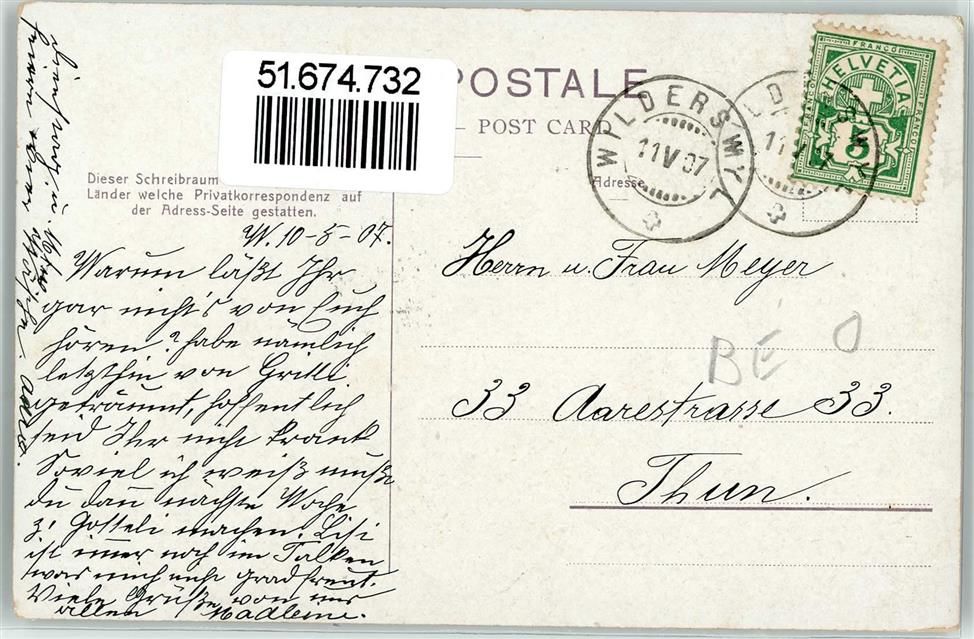 51.674.732
POSTALE
POST CARD
Adresse
Dieser Schreibraum
Länder welche Privatkorrespondenz auf
der Adress-Seite gestatten.
WILDERSWYL
11 V 07
HELVETIA
FRANCO
5
W. 10-5-07.
Warum läßt Ihr
gar nicht's von Euch
hören? habe nämlich
letzthin von Gritli
geträumt, hoffentlich
seid Ihr nicht krank
Soviel ich weiß muß
du dan nächste Woche
z' Gotteli machen. Lisi
ist immer noch im Falken
was mich nicht grad freut.
Viele Grüße von uns
allen Madleine.
Herrn u. Frau Meyer
33 Aarestrasse 33.
Thun.
BE 0